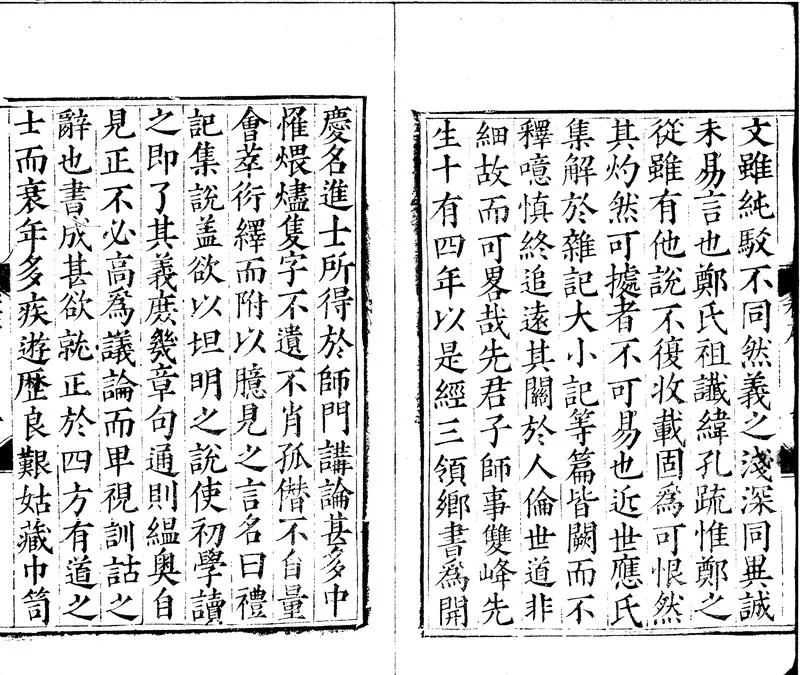 文雖純駁不同然義之淺深同異誠
未易言也鄭氏祖讖緯孔疏惟鄭之
從雖有他說不復收載固爲可恨然
其灼然可據者不可易也近世應氏
集解於雜記大小記等篇皆闕而不
釋噫慎終追遠其關於人倫世道非
細故而可畧哉先君子師事雙峰先
生十有四年以是經三領鄉書爲開
慶名進士所得於師門講論甚多中
罹煨燼隻字不遺不肖孤僭不自量
會萃衍繹而附以臆見之言名曰禮
記集說盖欲以坦明之說使初學讀
之即了其義庶幾章句通則縕奧自
見正不必高爲議論而卑視訓詁之
辭也書成甚欲就正於四方有道之
士而衰年多疾遊歷良艱姑藏巾笥